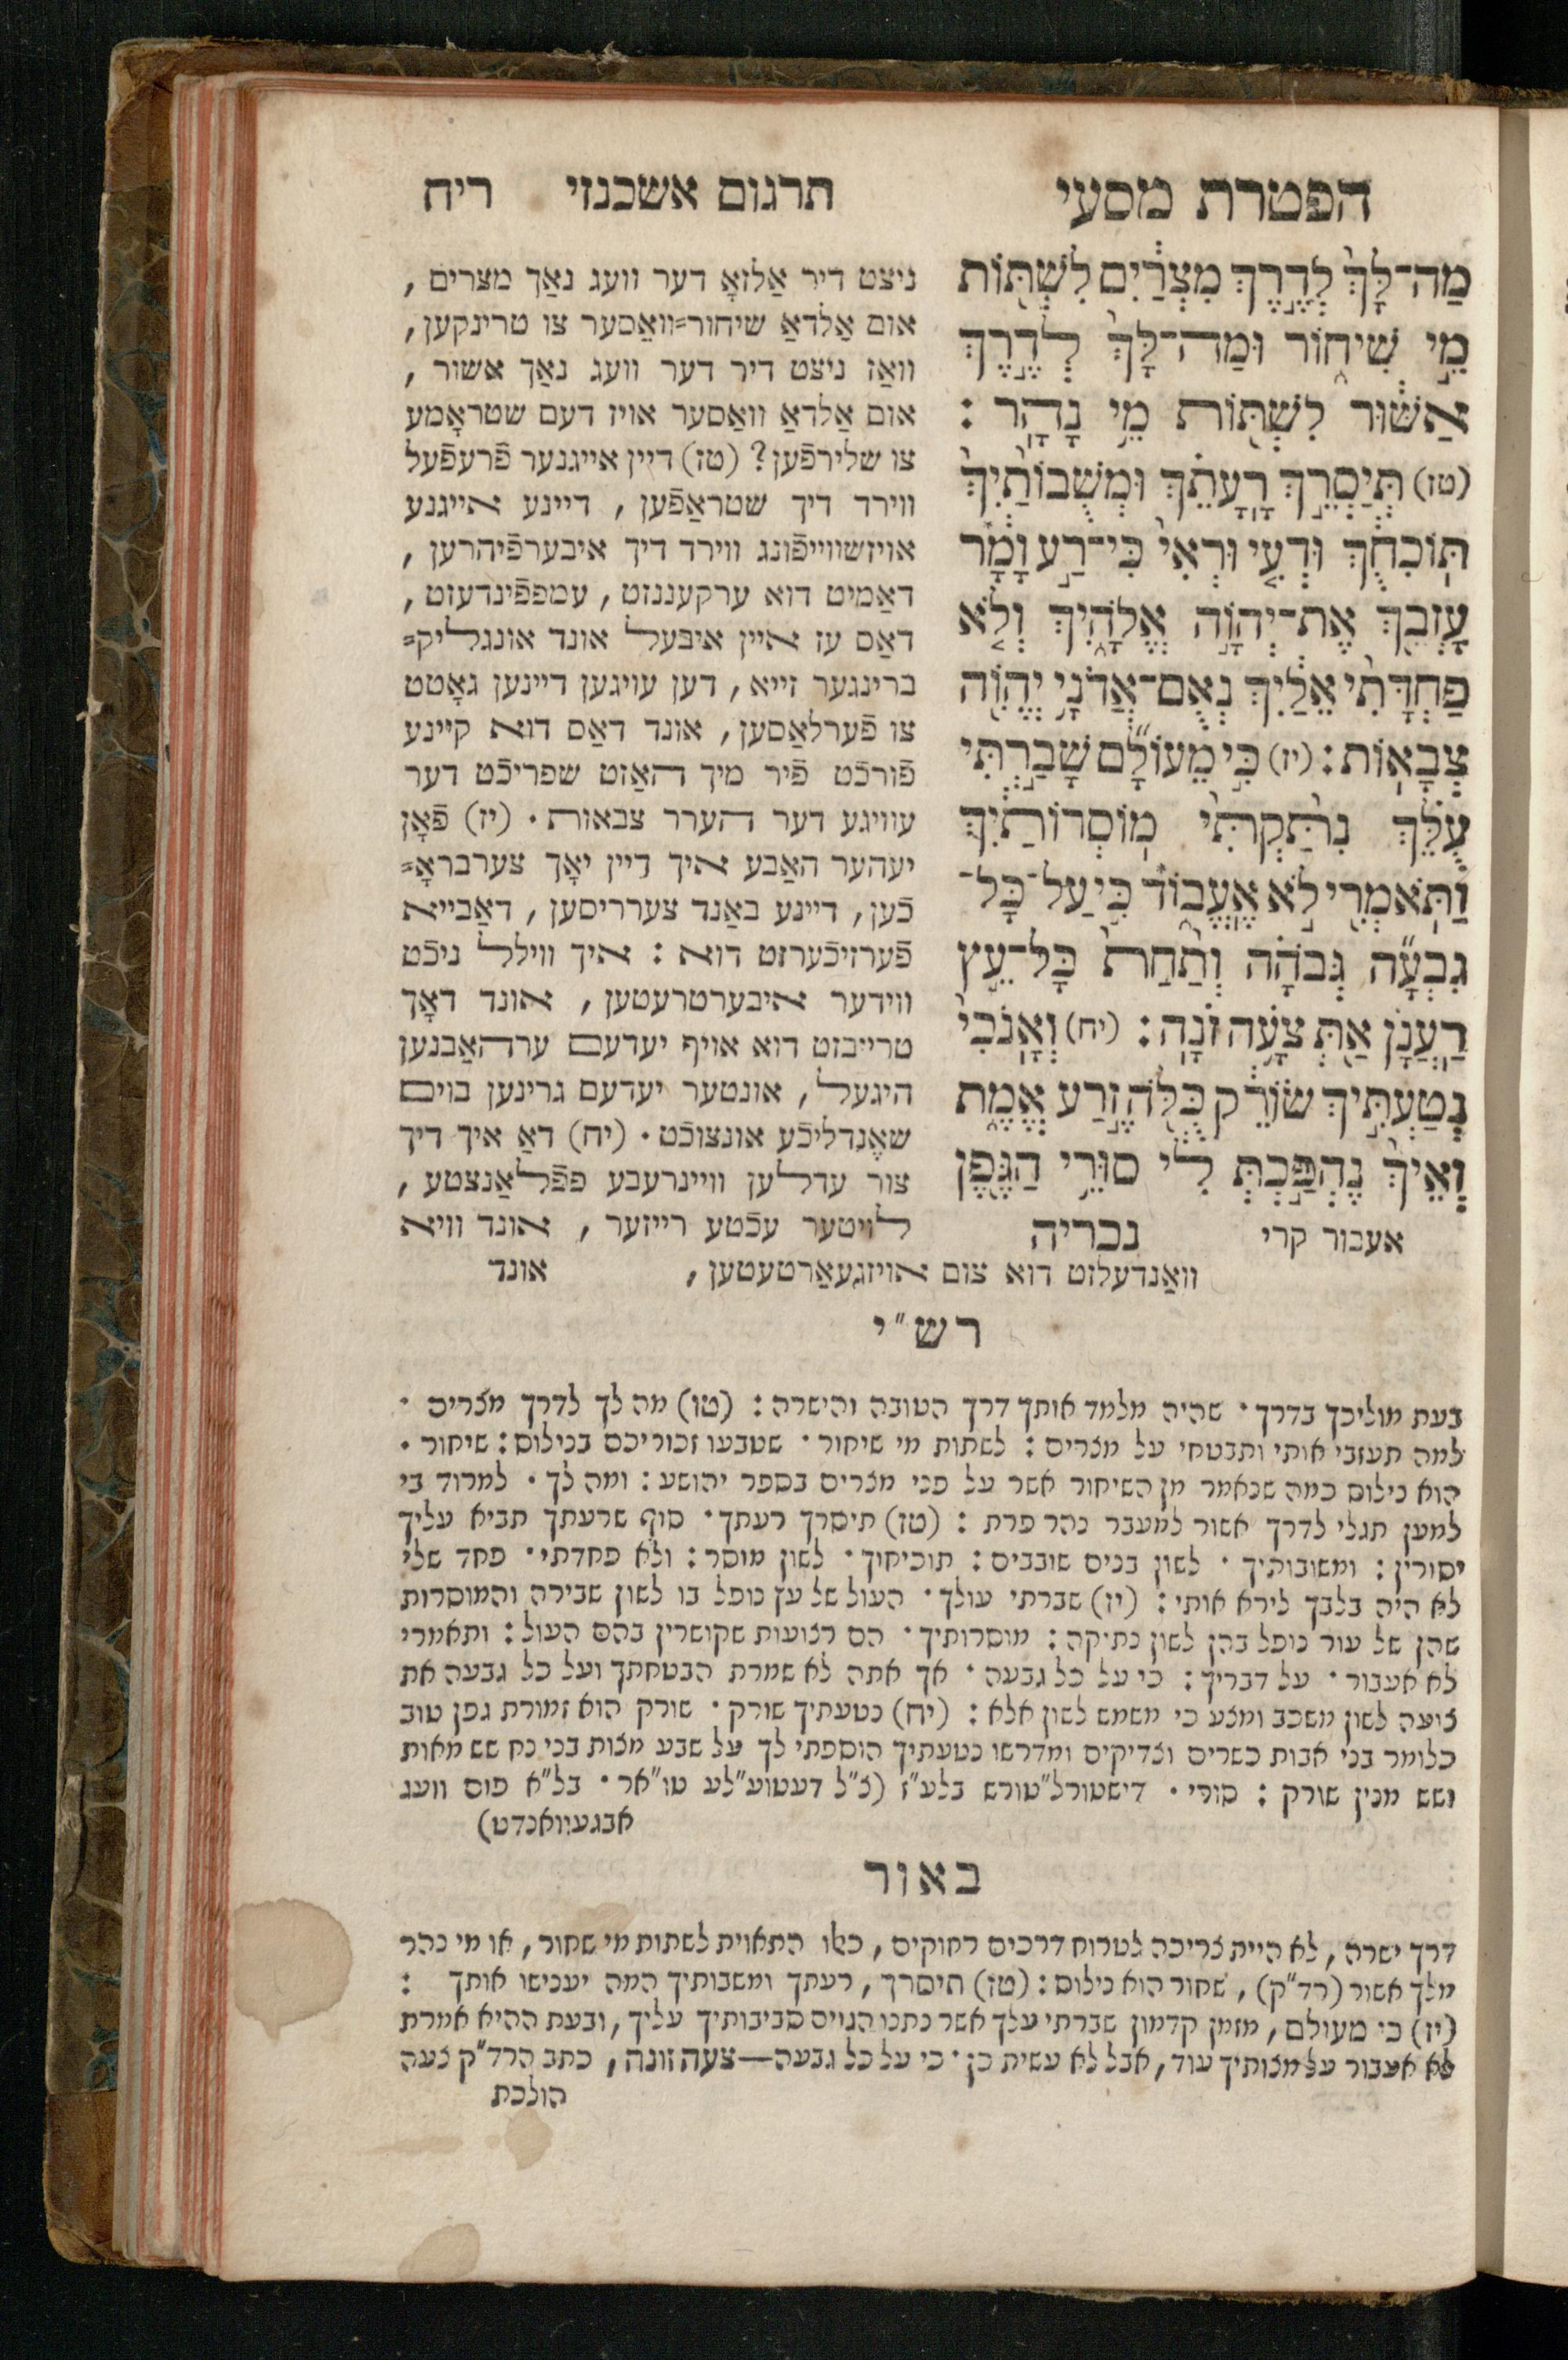 הפטרת מסעי
תרגום אשכנזי ריח
מַה־לָּךְ֙ לְדֶ֣רֶךְ מִצְרַ֔יִם לִשְׁתּ֖וֹת
מֵ֣י שִׁח֑וֹר וּמַה־לָּךְ֙ לְדֶ֣רֶךְ
אַשּׁ֔וּר לִשְׁתּ֖וֹת מֵ֥י נָהָֽר :
(טז) תְּיַסְּרֵ֣ךְ רָעָתֵ֗ךְ וּמְשֻׁבוֹתַ֙יִךְ֙
תּֽוֹכִחֻ֔ךְ וּדְעִ֤י וּרְאִי֙ כִּי־רַ֣ע וָמָ֔ר
עָזְבֵ֖ךְ אֶת־יְהוָ֣ה אֱלֹהָ֑יִךְ וְלֹ֤א
פַחְדָּתִי֙ אֵלַ֔יִךְ נְאֻם־אֲדֹנָ֥י יֱהוִ֖ה
צְבָאֽוֹת : (יז) כִּ֣י מֵעוֹלָ֞ם שָׁבַ֣רְתִּי
עֻלֵּ֗ךְ נִתַּ֙קְתִּי֙ מֽוֹסְרוֹתַ֔יִךְ
וַתֹּאמְרִ֖י לֹ֣א אֶֽעֱב֑וֹד כִּ֣י עַל־כָּל־
גִּבְעָ֞ה גְּבֹהָ֗ה וְתַ֙חַת֙ כָּל־עֵ֣ץ
רַֽעֲנָ֔ן אַ֖תְּ צֹעָ֥ה זֹנָֽה : (יח) וְאָֽנֹכִי֙
נְטַעְתִּ֣יךְ שׂוֹרֵ֔ק כֻּלֹּ֖ה זֶ֣רַע אֱמֶ֑ת
וְאֵיךְ֙ נֶהְפַּ֣כְתְּ לִ֔י סוּרֵ֥י הַגֶּ֖פֶן
אעבור קרי נכריה
ניצט דיר אַלזאָ דער וועג נאַך מצרים ,
אום אַלדאַ שיחור=וואַסער צו טרינקען ,
וואַז ניצט דיר דער וועג נאַך אשור ,
אום אַלדאַ וואַסער אויז דעם שטראָמע
צו שלירפֿען ? (טז) דיין אייגנער פֿרעפֿעל
ווירד דיך שטראַפֿען , דיינע אייגנע
אויזשווייפֿונג ווירד דיך איבערפֿיהרען ,
דאַמיט דוא ערקעננזט , עמפפֿינדעזט ,
דאַס עז איין איבעל אונד אונגליק=
ברינגער זייא , דען עויגען דיינען גאָטט
צו פֿערלאַסען , אונד דאַס דוא קיינע
פֿורכֿט פֿיר מיך האַזט שפריכֿט דער
עוויגע דער הערר צבאות . (יז) פֿאָן
יעהער האַבע איך דיין יאָך צערבראָ=
כֿען , דיינע באַנד צערריסען , דאַבייא
פֿערזיכֿערזט דוא : איך ווילל ניכֿט
ווידער איבערטרעטען , אונד דאָך
טרייבזט דוא אויף יעדעם ערהאַבנען
היגעל , אונטער יעדעם גרינען בוים
שאֶנדליכֿע אונצוכֿט . (יח) דאַ איך דיך
צור עדלען וויינרעבע פפֿלאַנצטע ,
לויטער עכֿטע רייזער , אונד וויא
וואַנדעלזט דוא צום אויזגעאַרטעטען , אונד
רש״י
בעת מוליכך בדרך · שהיה מלמד אותך דרך הטובה והישרה : (טו) מה לך לדרך מצרים ·
למה תעזבי אותי ותבטחי על מצרים : לשתות מי שיחור · שטבעו זכוריכם בנילוס : שיחור ·
הוא נילוס כמה שנאמר מן השיחור אשר על פני מצרים בספר יהושע : ומה לך · למרוד בי
למען תגלי לדרך אשור למעבר נהר פרת : (טז) תיסרך רעתך · סוף שרעתך תביא עליך
יסורין : ומשובותיך · לשון בנים שובבים : תוכיחוך · לשון מוסר : ולא פחדתי · פחד שלי
לא היה בלבך לירא אותי : (יז) שברתי עולך · העול של עץ נופל בו לשון שבירה והמוסרות
שהן של עור נופל בהן לשון נתיקה : מוסרותיך · הם רצועות שקושרין בהם העול : ותאמרי
לא אעבור · על דבריך : כי על כל גבעה · אך אתה לא שמרת הבטחתך ועל כל גבעה את
צועה לשון משכב ומצע כי משמש לשון אלא : (יח) נטעתיך שורק · שורק הוא זמורת גפן טוב
כלומר בני אבות כשרים וצדיקים ומדרשו נטעתיך הוספתי לך על שבע מצות בני נח שש מאות
ושש מנין שורק : סורי · דישטורל״טורש בלע״ז (צ״ל דעטוע״לע טו״אר · בל״א פוס וועג
אבגעוואנדט)
באור
דרך ישרה , לא היית צריכה לטרוח דרכים רחוקים , כאלו התאוית לשתות מי שחור , או מי נהר
מלך אשור (רד״ק) , שחור הוא נילוס : (טז) תיסרך , רעתך ומשבותיך המה יענישו אותך :
(יז) כי מעולם , מזמן קדמון שברתי עלך אשר נתנו הגוים סביבותיך עליך , ובעת ההיא אמרת
לא אעבור על מצותיך עוד , אבל לא עשית כן · כי על כל גבעה — צעה זונה , כתב הרד״ק צעה
הולכת